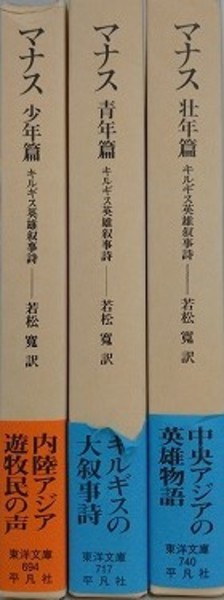 マナス 少年篇
キルギス英雄叙事詩
若松寛 訳
内陸アジア
遊牧民の声
東洋文庫
694
平凡社
マナス 青年篇
キルギス英雄叙事詩
若松寛 訳
キルギスの
大叙事詩
東洋文庫
717
平凡社
マナス 壮年篇
キルギス英雄叙事詩
若松寛 訳
中央アジアの
英雄物語
東洋文庫
740
平凡社